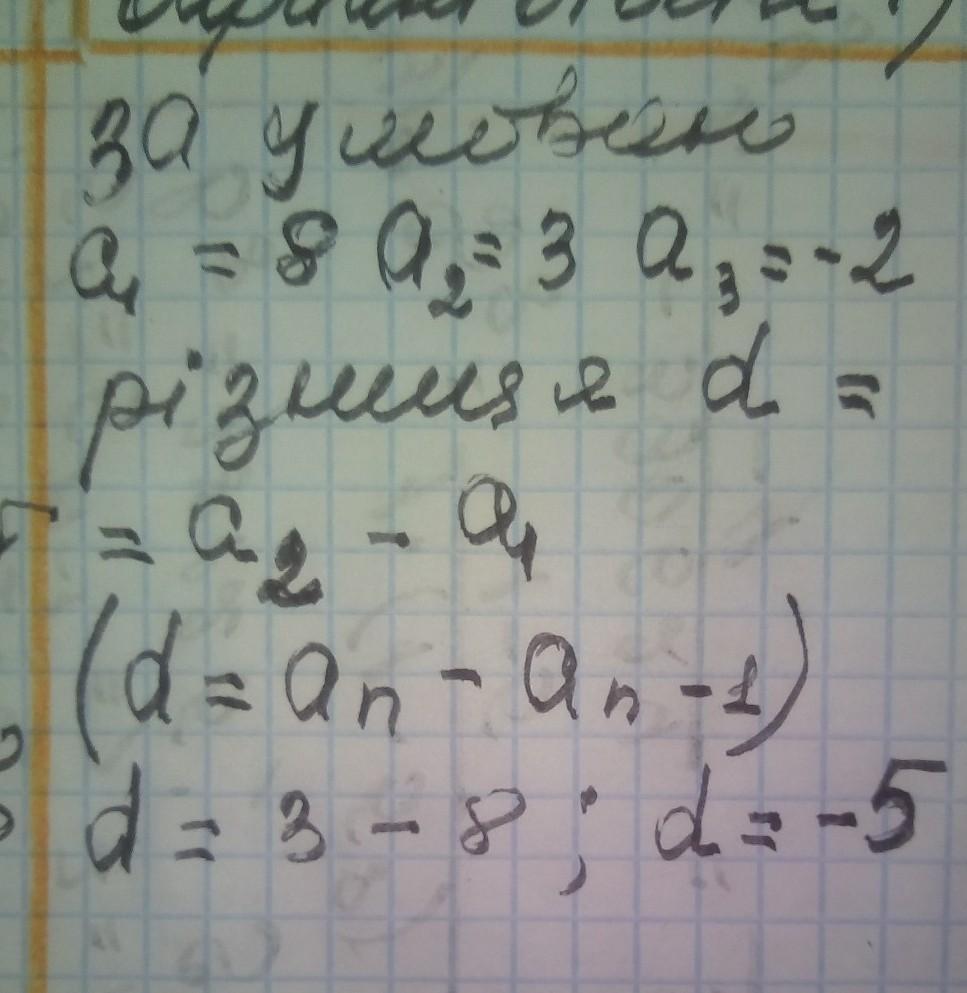 за умовою
a₁ = 8 a₂ = 3 a₃ = -2
різниця d =
= a₂ - a₁
(d = aₙ - aₙ₋₁)
d = 3 - 8 ; d = -5